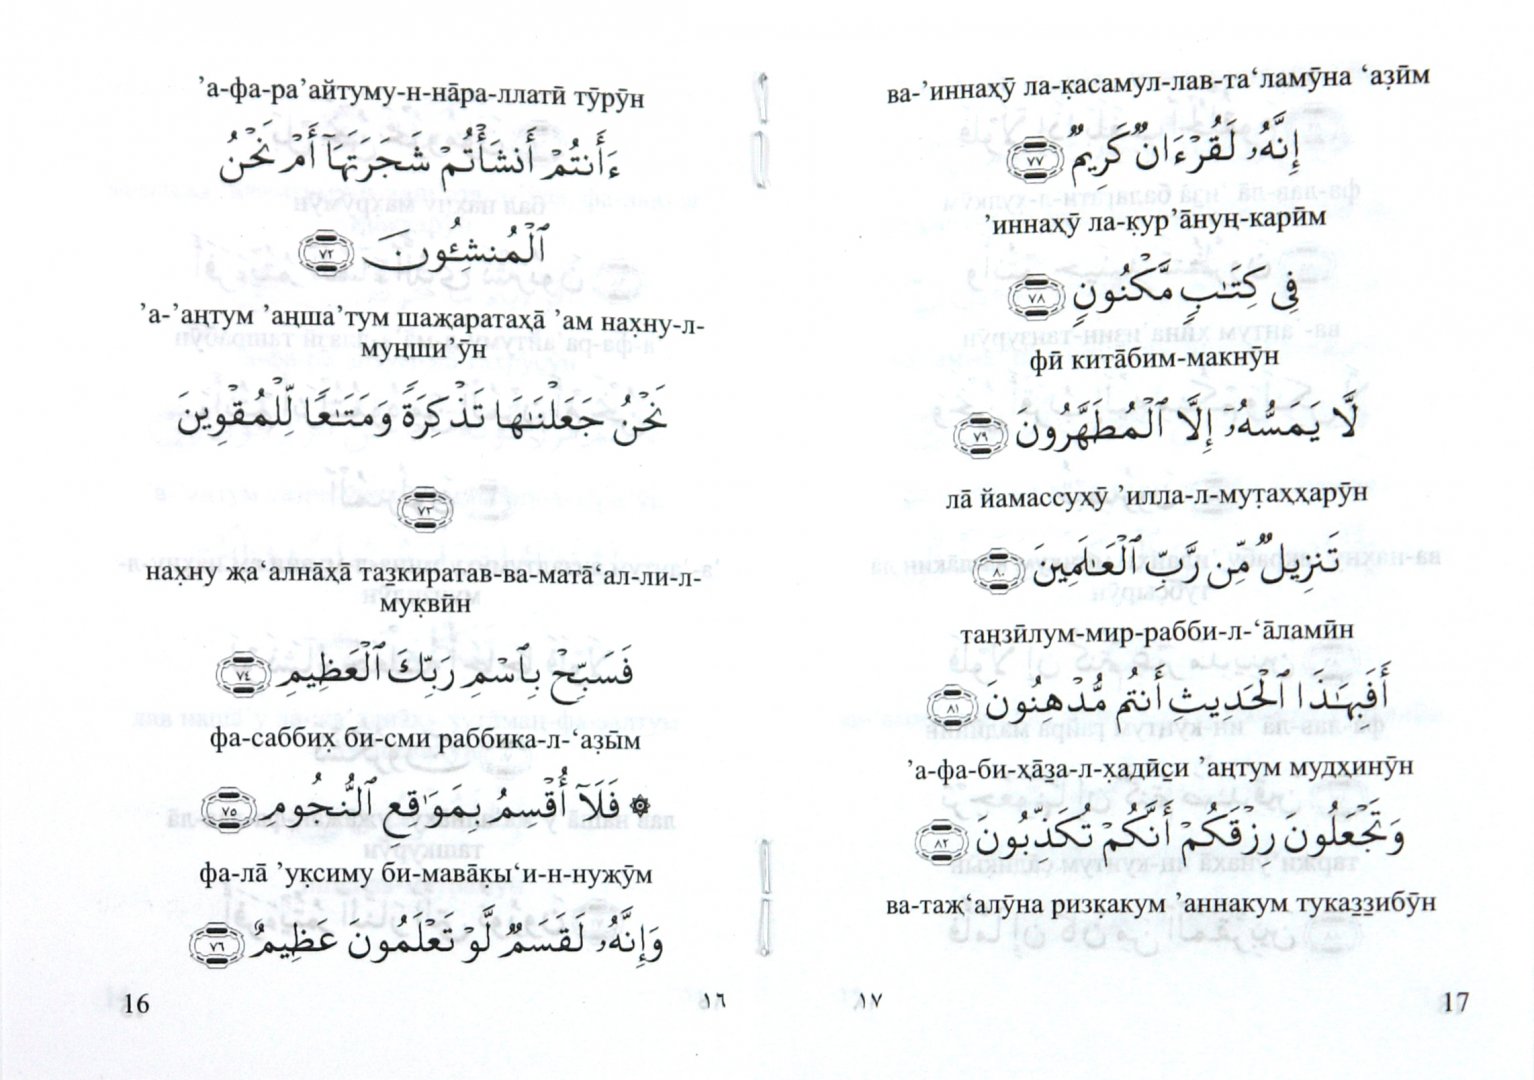 ’а-фа-ра’айтуму-н-на̄ра-ллатӣ тӯрӯн
ءَأَنتُمۡ أَنشَأۡتُمۡ شَجَرَتَهَآ أَمۡ نَحۡنُ
ٱلۡمُنشِـُٔونَ ٧٢
’а-’аңтум ’аңша’тум шаҗаратаҳа̄ ’ам нахну-л-
муңши’ӯн
نَحۡنُ جَعَلۡنَٰهَا تَذۡكِرَةٗ وَمَتَٰعٗا لِّلۡمُقۡوِينَ
٧٣
нахну җа‘ална̄ҳа̄ таз̱киратав-ва-мата̄‘ал-ли-л-
муқвӣн
فَسَبِّحۡ بِٱسۡمِ رَبِّكَ ٱلۡعَظِيمِ ٧٤
фа-саббиҳ би-сми раббика-л-‘аз̣ы̄м
۞ فَلَآ أُقۡسِمُ بِمَوَٰقِعِ ٱلنُّجُومِ ٧٥
фа-ла̄ ’уқсиму би-мава̄қы‘и-н-нуҗӯм
وَإِنَّهُۥ لَقَسَمٞ لَّوۡ تَعۡلَمُونَ عَظِيمٌ ٧٦
16
١٦
ва-’иннаҳӯ ла-қасамул-лав-та‘ламӯна ‘аз̣ӣм
إِنَّهُۥ لَقُرۡءَانٞ كَرِيمٞ ٧٧
’иннаҳӯ ла-қур’а̄нуң-карӣм
فِي كِتَٰبٖ مَّكۡنُونٖ ٧٨
фӣ кита̄бим-макнӯн
لَّا يَمَسُّهُۥٓ إِلَّا ٱلۡمُطَهَّرُونَ ٧٩
ла̄ йамассуҳӯ ’илла-л-мут̣аҳҳарӯн
تَنزِيلٞ مِّن رَّبِّ ٱلۡعَٰلَمِينَ ٨٠
таңзӣлум-мир-рабби-л-‘а̄ламӣн
أَفَبِهَٰذَا ٱلۡحَدِيثِ أَنتُم مُّدۡهِنُونَ ٨١
’а-фа-би-ҳа̄з̱а-л-ҳадӣс̱и ’аңтум мудҳинӯн
وَتَجۡعَلُونَ رِزۡقَكُمۡ أَنَّكُمۡ تُكَذِّبُونَ ٨٢
ва-таҗ‘алӯна ризқакум ’аннакум туказ̱з̱ибӯн
١٧
17